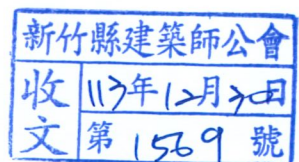 新竹縣建築師公會
收文
113年12月30日
第1569號